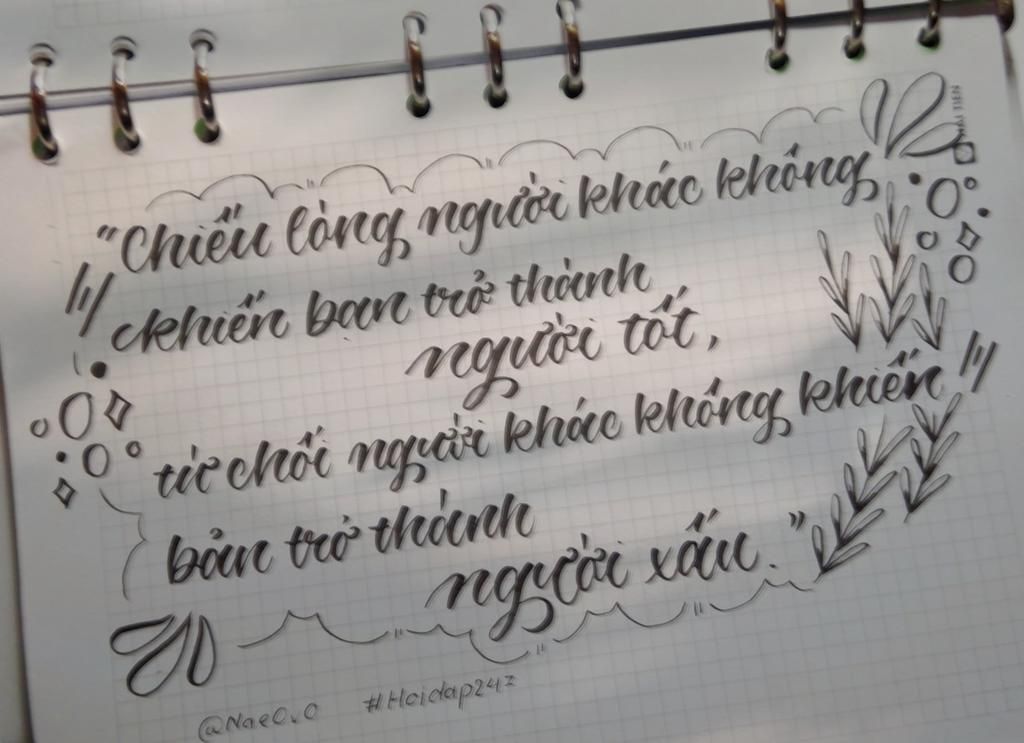 "Chiều lòng người khác không
khiến bạn trở thành
người tốt,
từ chối người khác không khiến
bản trở thành
người xấu."
@NaeO.O #Hoidap247
MAI TIEN